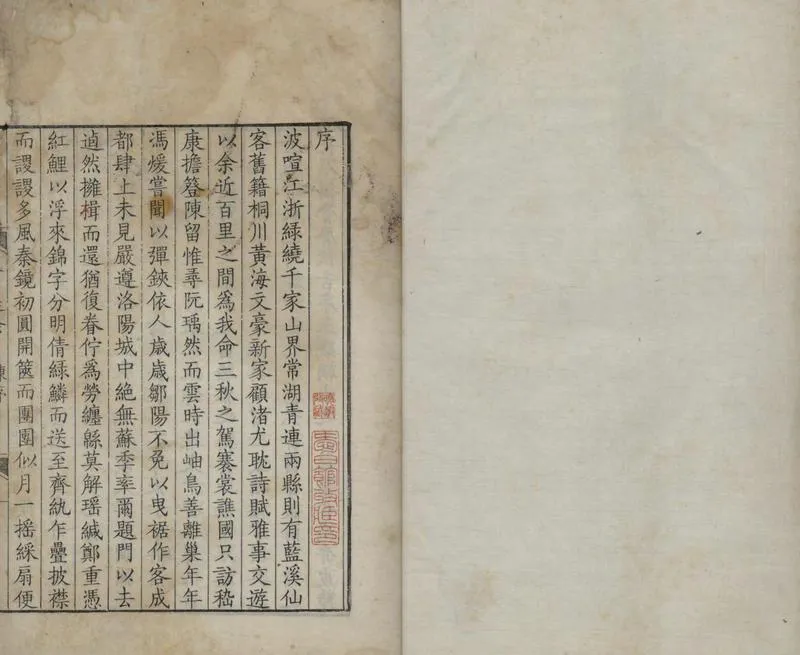 序
波喧江浙綠繞千家山界常湖青連兩縣則有藍溪仙
客舊籍桐川黃海文豪新家顧渚尤耽詩賦雅事交遊
以余近百里之間爲我命三秋之駕褰裳譙國只訪嵇
康擔簦陳留惟尋阮瑀然而雲時出岫鳥善離巢年年
馮煖嘗聞以彈鋏依人歲歲鄒陽不免以曳裾作客成
都肆上未見嚴遵洛陽城中絶無蘇季率爾題門以去
逌然擁楫而還猶復眷佇爲勞纏緜莫解瑶緘鄭重憑
紅鯉以浮來錦字分明倩綠鱗而送至齊紈乍疊披襟
而謖謖多風秦鏡初圓開篋而團團似月一摇綵扇便